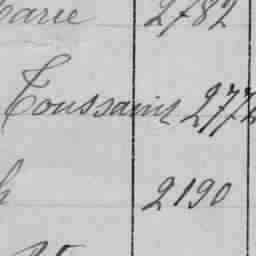 Marie 2782
Toussaint 277
2190